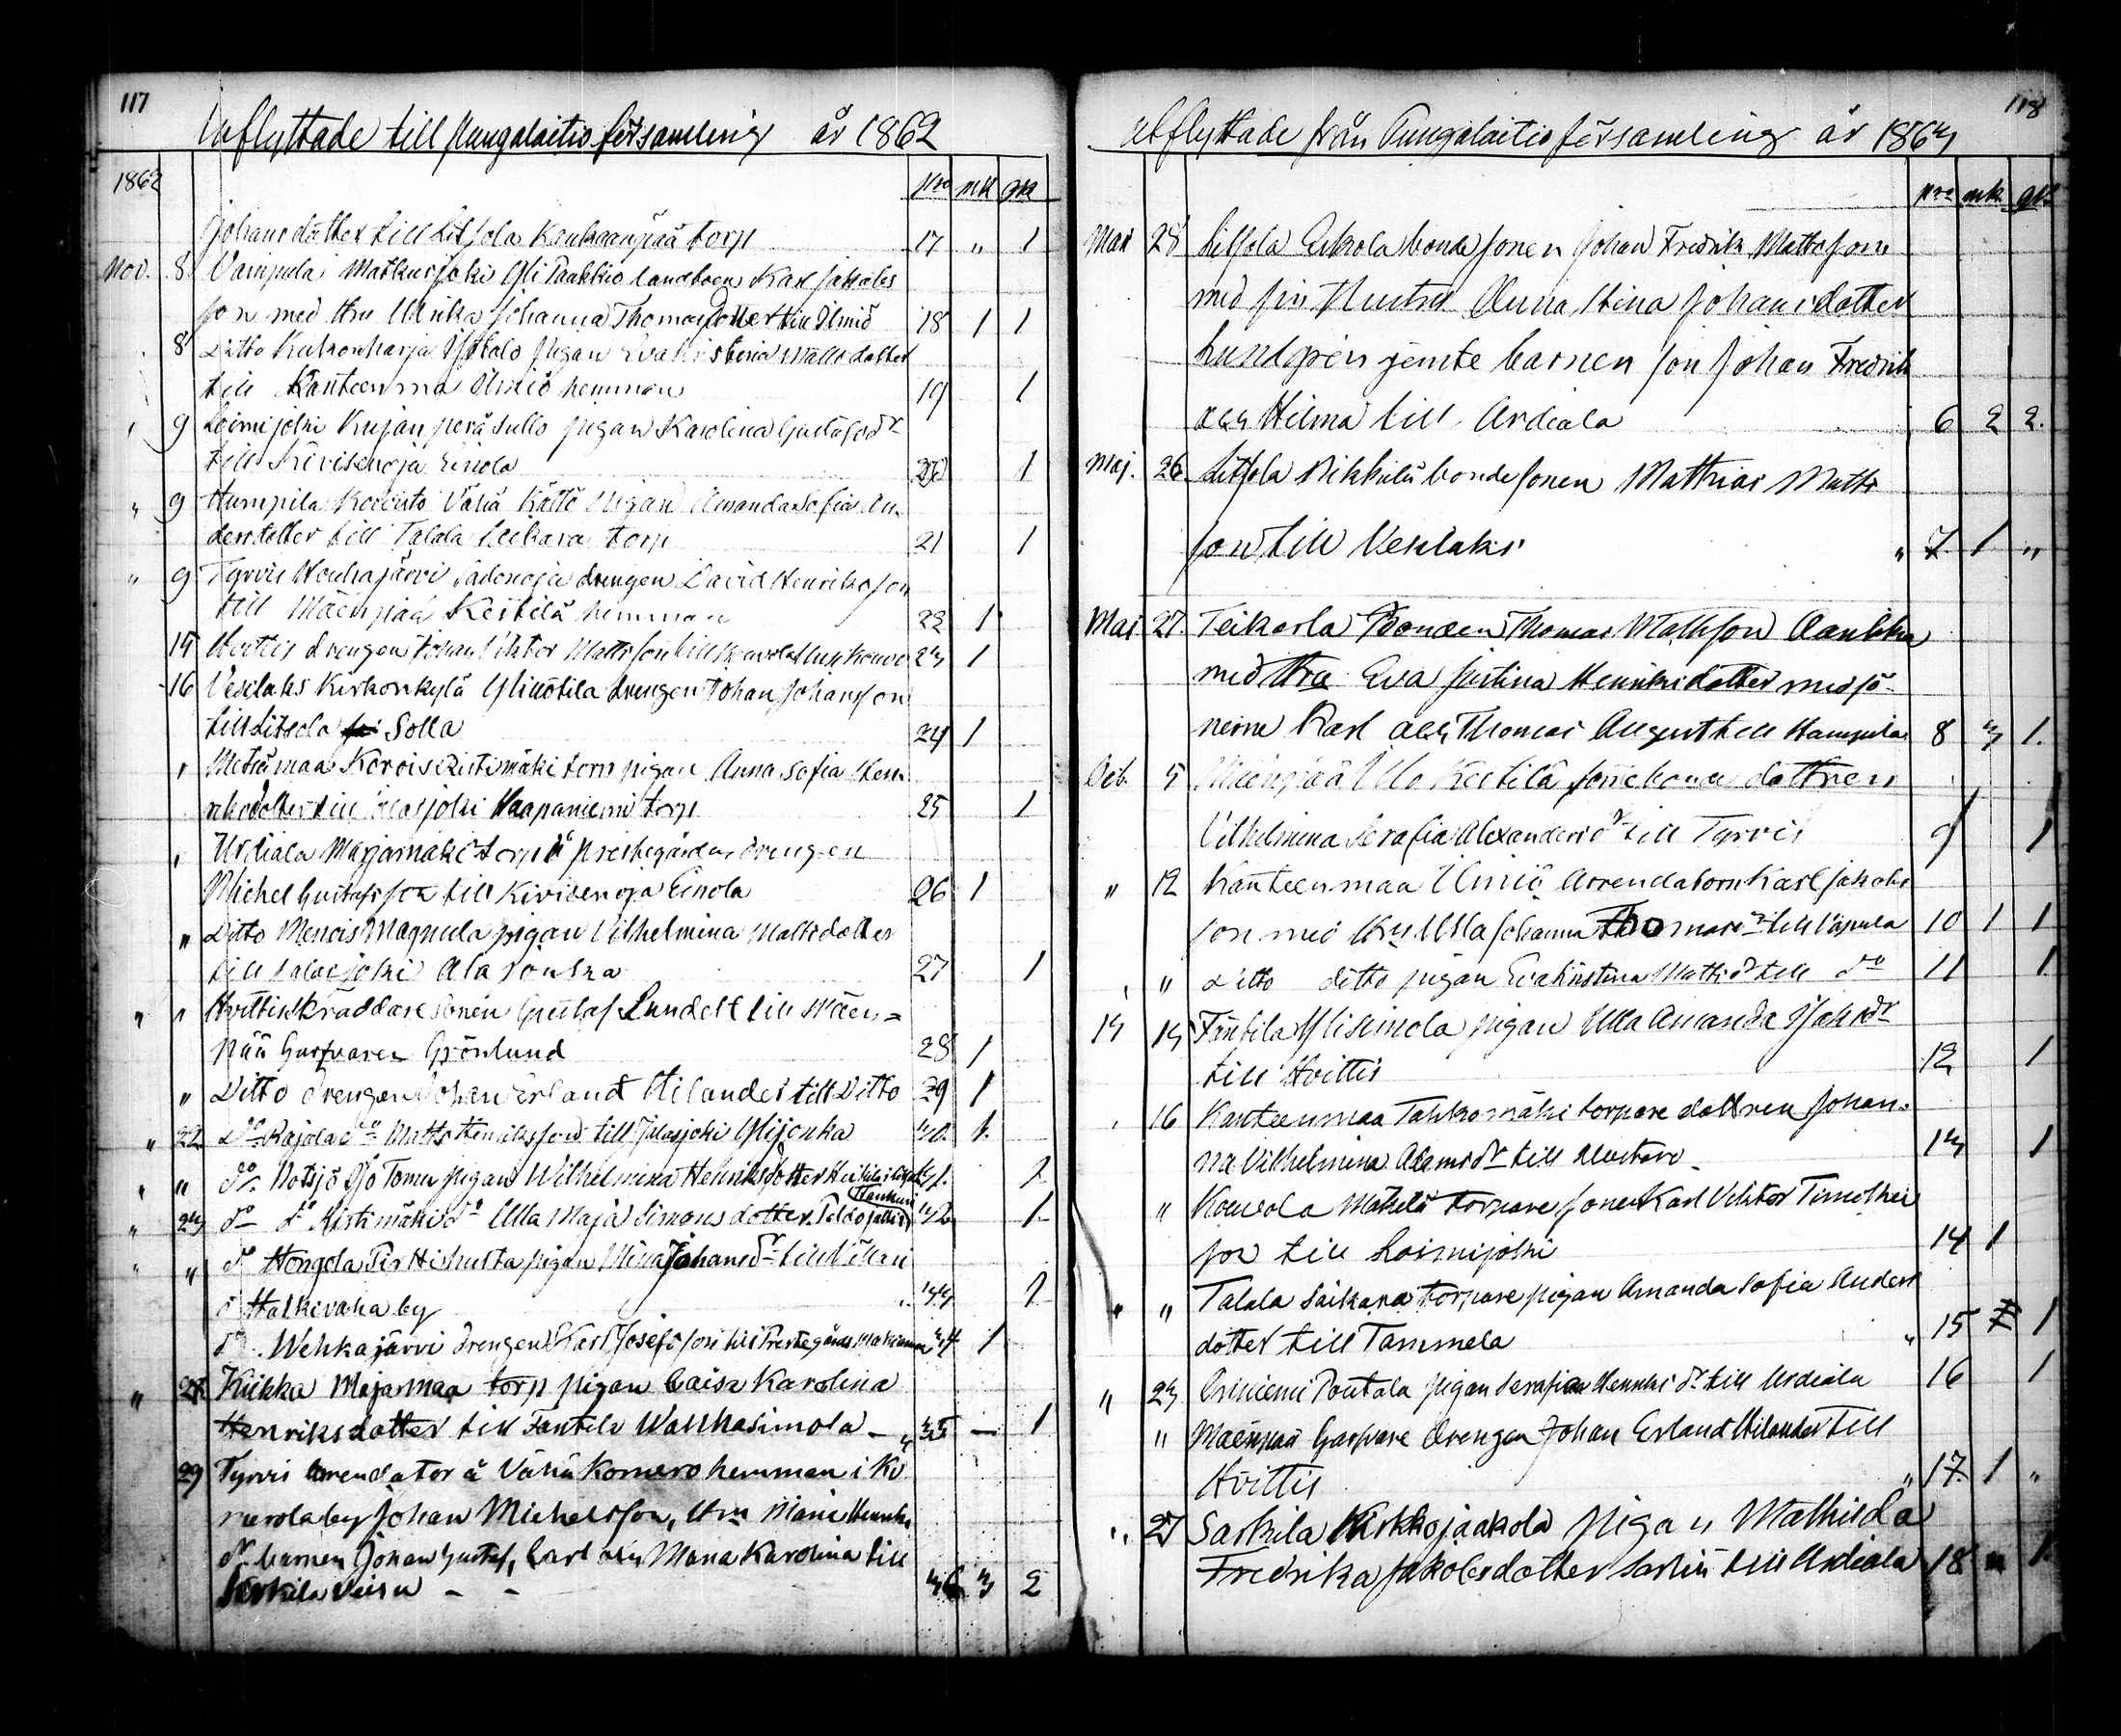 117
Inflyttade till Pungalaitio församling år 1862
1862 Nro mk qk
Johansdotter till Litsola Kankaanpää torp 17 " 1
Nov. 8 Vampula Matkusjoki Yli Paakkio landboen Karl Jakobs
son med Hu Ulrika Johanna Thomasdotter till Ilmiö 18 1 1
8 Ditto Kukonharja Isotalo pigan Eva Kristina Mattsdotter
till Kanteenmaa Ilmiö hemman 19 1
" 9 Loimijoki Kujanperä Sullo pigan Karolina Gustafsdr
till Kivisenoja Einola 20 1
" 9 Humpila Koivisto Vähä Kättö pigan Amanda Sofia An-
dersdotter till Talala Seikara torp 21 1
" 9 Tyrvis Houhajärvi Sadonoja drengen David Henriksson
till Mäenpää Kestilä hemman 22 1
15 Hvittis drengen Johan Viktor Mattsson till 23 1
16 Vesilaks Kirkonkylä Ylinötila drengen Johan Johansson
till Litsola Solla 24 1
" Metsämaa Korois Ristimäki torp pigan Anna Sofia Hen-
riksdotter till Jalasjoki Haapaniemi torp 25 1
" Urdiala Marjamäki torp å prestegården drengen
Michel Gustafsson till Kivisenoja Einola 26 1
" Ditto Menois Magnula pigan Vilhelmina Mattsdotter
till Jalasjoki Ala Jouka 27 1
" " Hvittis skräddare sonen Gustaf Lundell till Mäen=
pää Garfvaren Grönlund 28 1
" Ditto drengen Johan Erland Hilander till Ditto 29 1
" 22 Do Rajala do Matts Henriksson till Jalasjoki Ylijouka 30. 1.
" " do. Potsjö Iso Tomu pigan Wilhelmina Henriksdotter till 31. 1
" 23 do do Ristimäki do Ulla Maja Simonsdotter 32 1
" " do Hongola Pirttihulta pigan Mina Johansdr till Villari
i Halkivaha by 33 1
do. Wehkajärvi drengen Karl Josefsson till Prestegårds 34 1
" 28 Kiikka Majamaa torp pigan Caisa Karolina
Henriksdotter till Fantila Wanhasimola — " 35 — 1
29 Tyrvis Arendator å Vähä Komero hemman i Ko
merola by Johan Michelsson, Hru Maria Henriks
dr barnen Johan Gustaf, Carl och Maria Karolina till
Sarkila Veisu — — 36 3 2
118
Utflyttade från Pungalaitio församling år 1863
Nro mk. qk.
Mar 28 Litsola Eskola bonde sonen Johan Fredrik Mattsson
med sin Hustru Anna Stina Johansdotter
Lundgren jemte barnen son Johan Fredrik
och Hilma till Urdiala 6 2 2.
Maj. 26 Litsola Nikkilä bonde sonen Matthias Matts
son till Vesilaks " 7 1 "
Maj. 27. Teikarla Bonden Thomas Mattsson Uanikka
med Hru Eva Justina Henriksdotter med sö-
nerne Karl och Thomas August till Hampula 8 3 1.
Octb. 5 Mäenpää Ulo Kestilä förre bonde dottren
Vilhelmina Serafia Alexandersdr till Tyrvis 9 1
" 12 Kanteenmaa Ilmiö Arrendatorn Karl Jakobs
son med Hru Ulla Johanna Thomasdr till Vampula 10 1 1
" " Ditto ditto pigan Eva Kristina Mattsdr till do 11 1
13 13 Fantila Ylisimola pigan Ulla Amanda Isaksdr
till Hvittis 12 1
" 16 Kanteenmaa Tahkomäki torpare dottren Johan-
na Vilhelmina Adamsdr till Alastaro 13 1
" Kouvola Mäkelä torpare sonen Karl Viktor Timothei
son till Loimijoki 14 1
" " Talala Saikara torpare pigan Amanda Sofia Anders
dotter till Tammela " 15 1
" 23 Oriniemi Poutala pigan Serafia Henriksdr till Urdiala 16 1
" Mäenpää Garfvare drengen Johan Erland Hilander till
Hvittis " 17. 1 "
" 27 Sarkila Kirkkojaakola pigan Mathilda
Fredrika Jakobsdotter Sarlin till Urdiala 18 " 1.